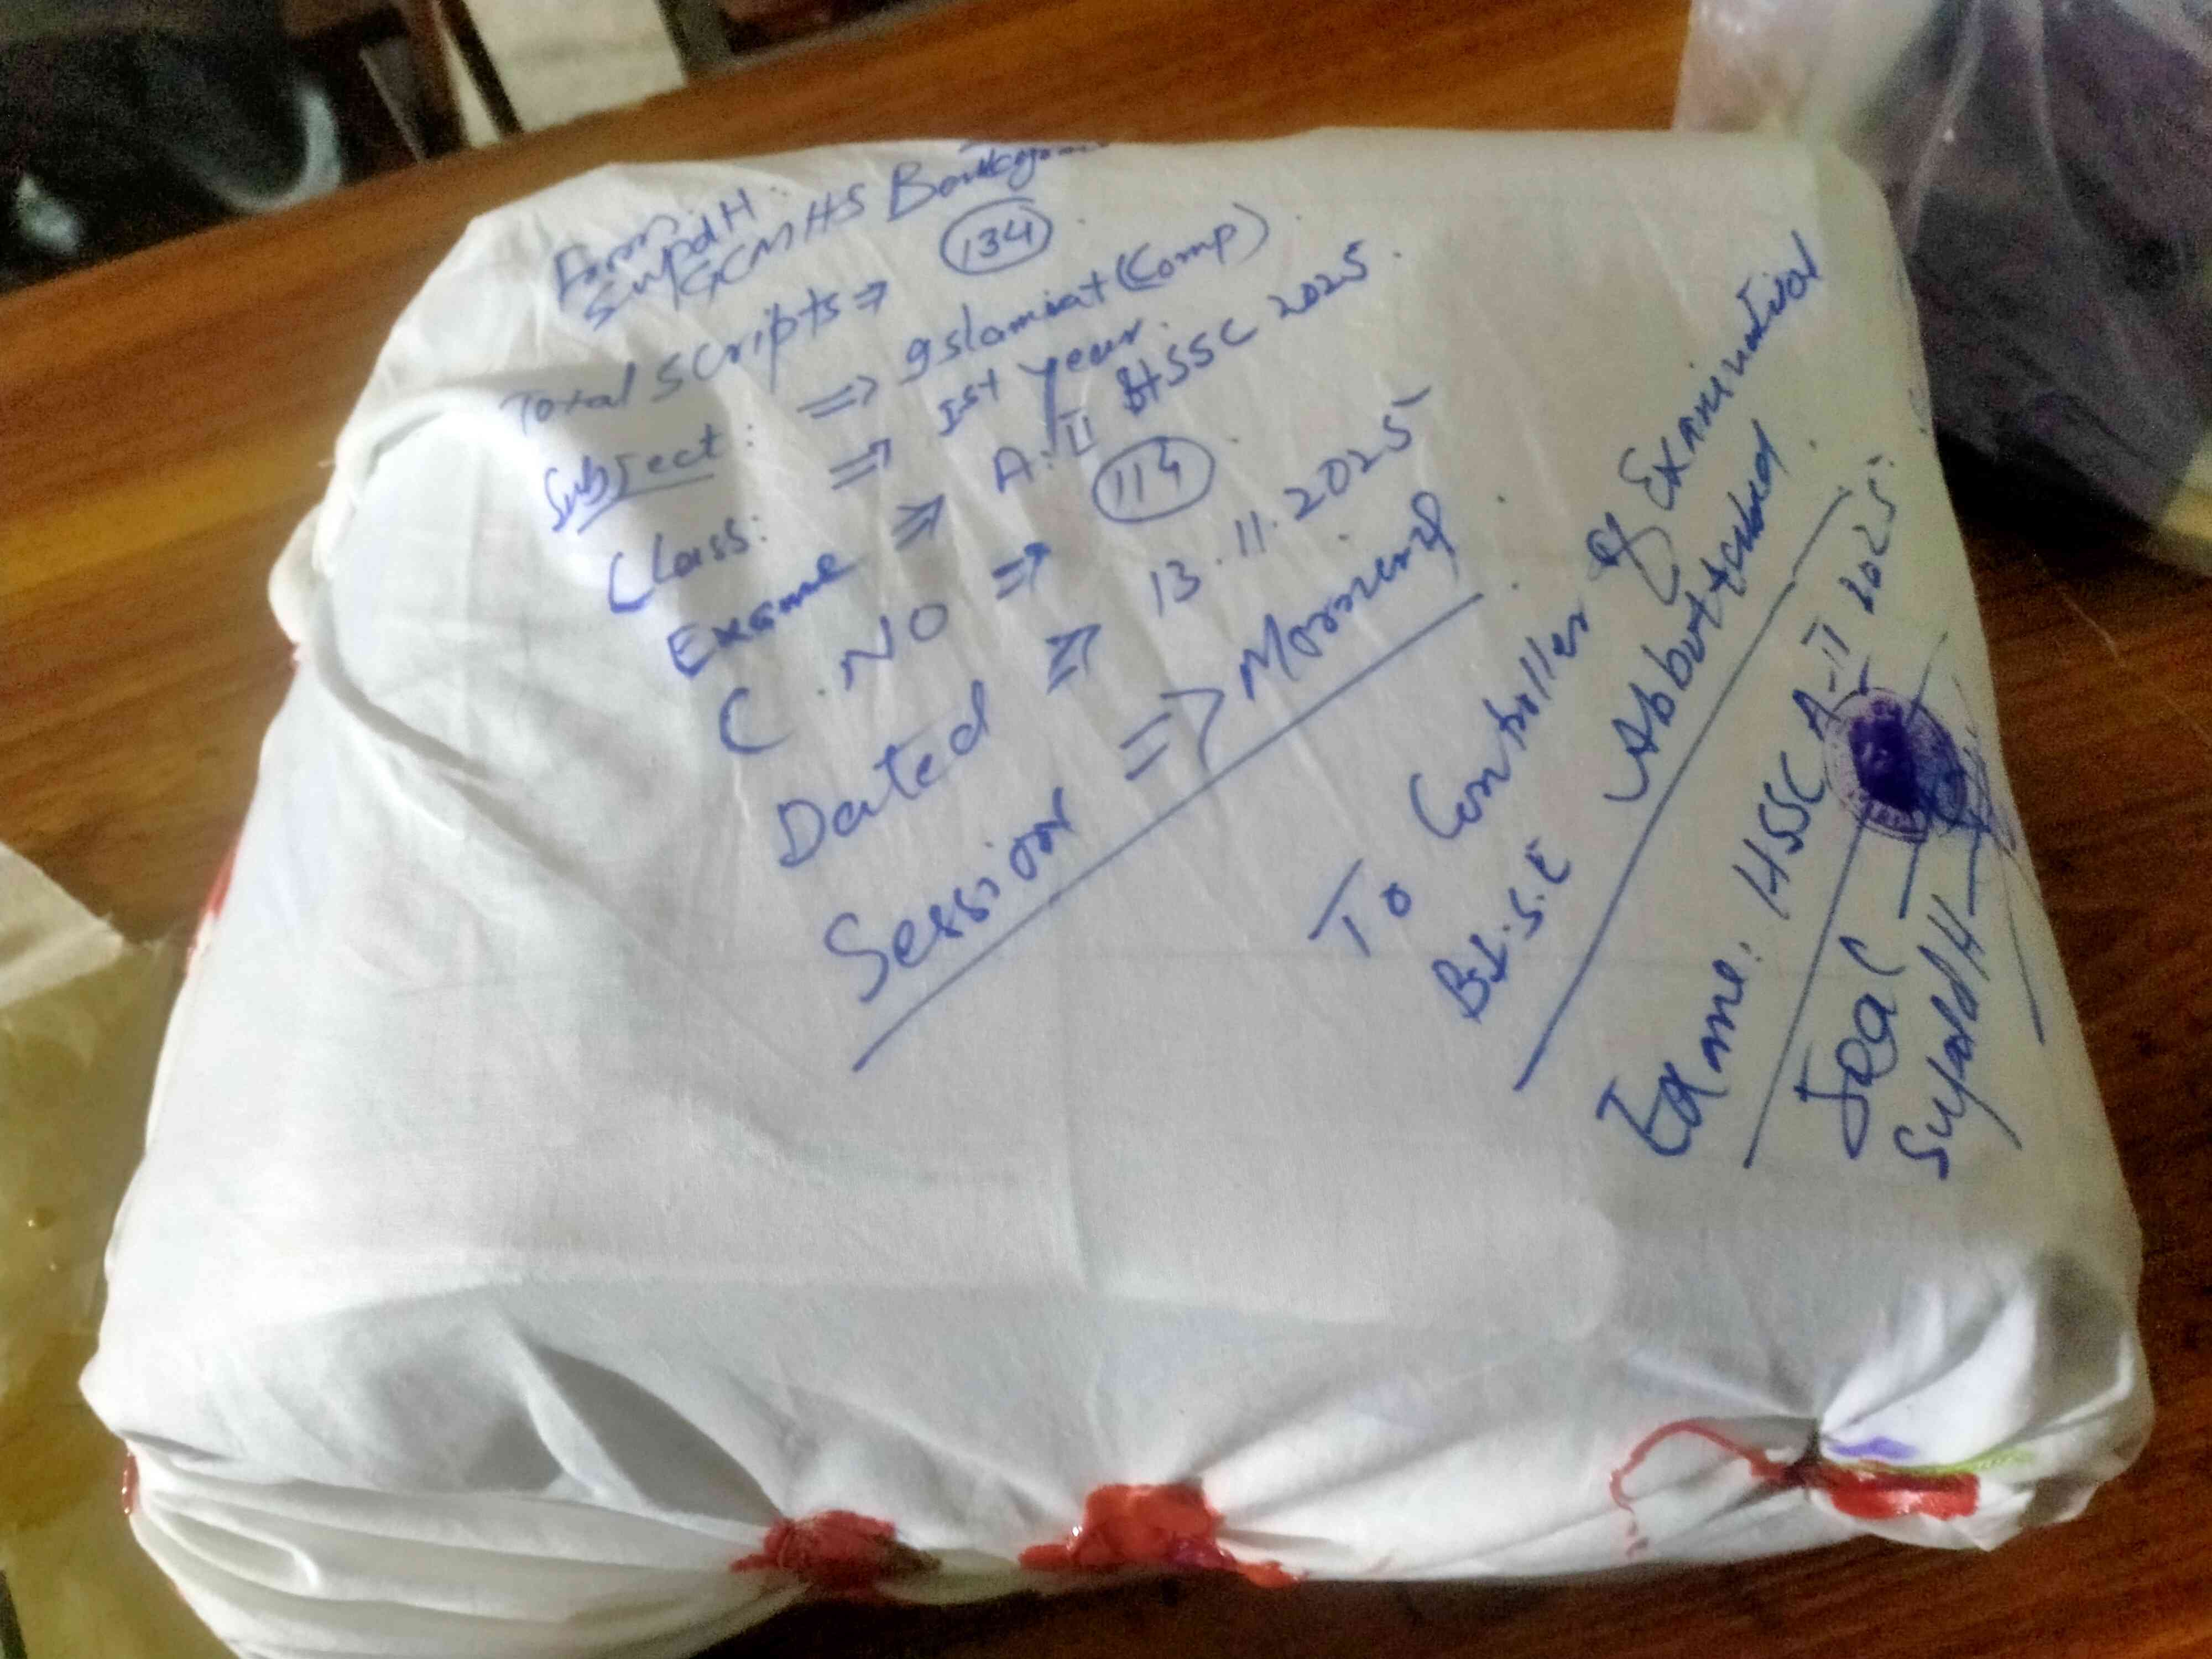 From
Supdt:
GCMHS Battagram
Total Scripts => 134
Subject: => Islamiat (Comp)
Class: => Ist year.
Exame => A.II HSSC 2025.
C.NO => 114
Dated => 13.11.2025
Session => Morning
To Controller of Examination
B.I.S.E Abbottabad
Exame: HSSC A-II 2025.
Seal
SupddH